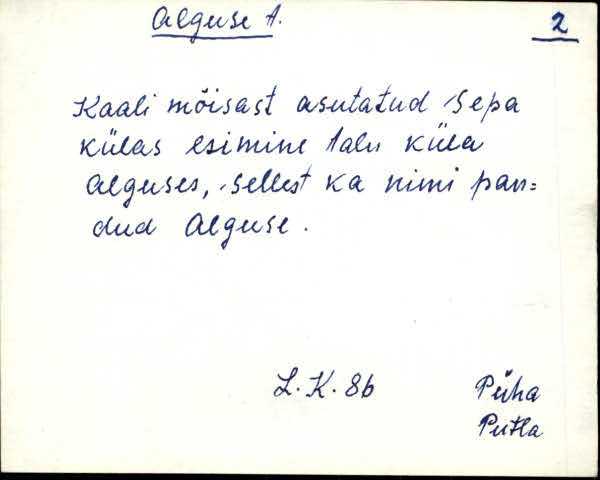 Alguse t.
2
Kaali mõisast asutatud Sepa
külas esimine talu küla
alguses, sellest ka nimi pan=
dud Alguse.
L. K. 86
Püha
Putla